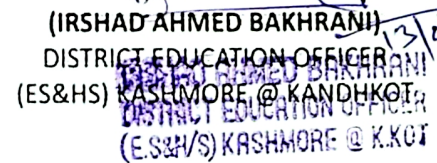 (IRSHAD AHMED BAKHRANI)
13/
DISTRICT EDUCATION OFFICER
(ES&HS) KASHMORE @ KANDHKOT
IRSHAD AHMED BAKHRANI
DISTRICT EDUCATION OFFICER
(E.S&H/S) KASHMORE @ K.KOT